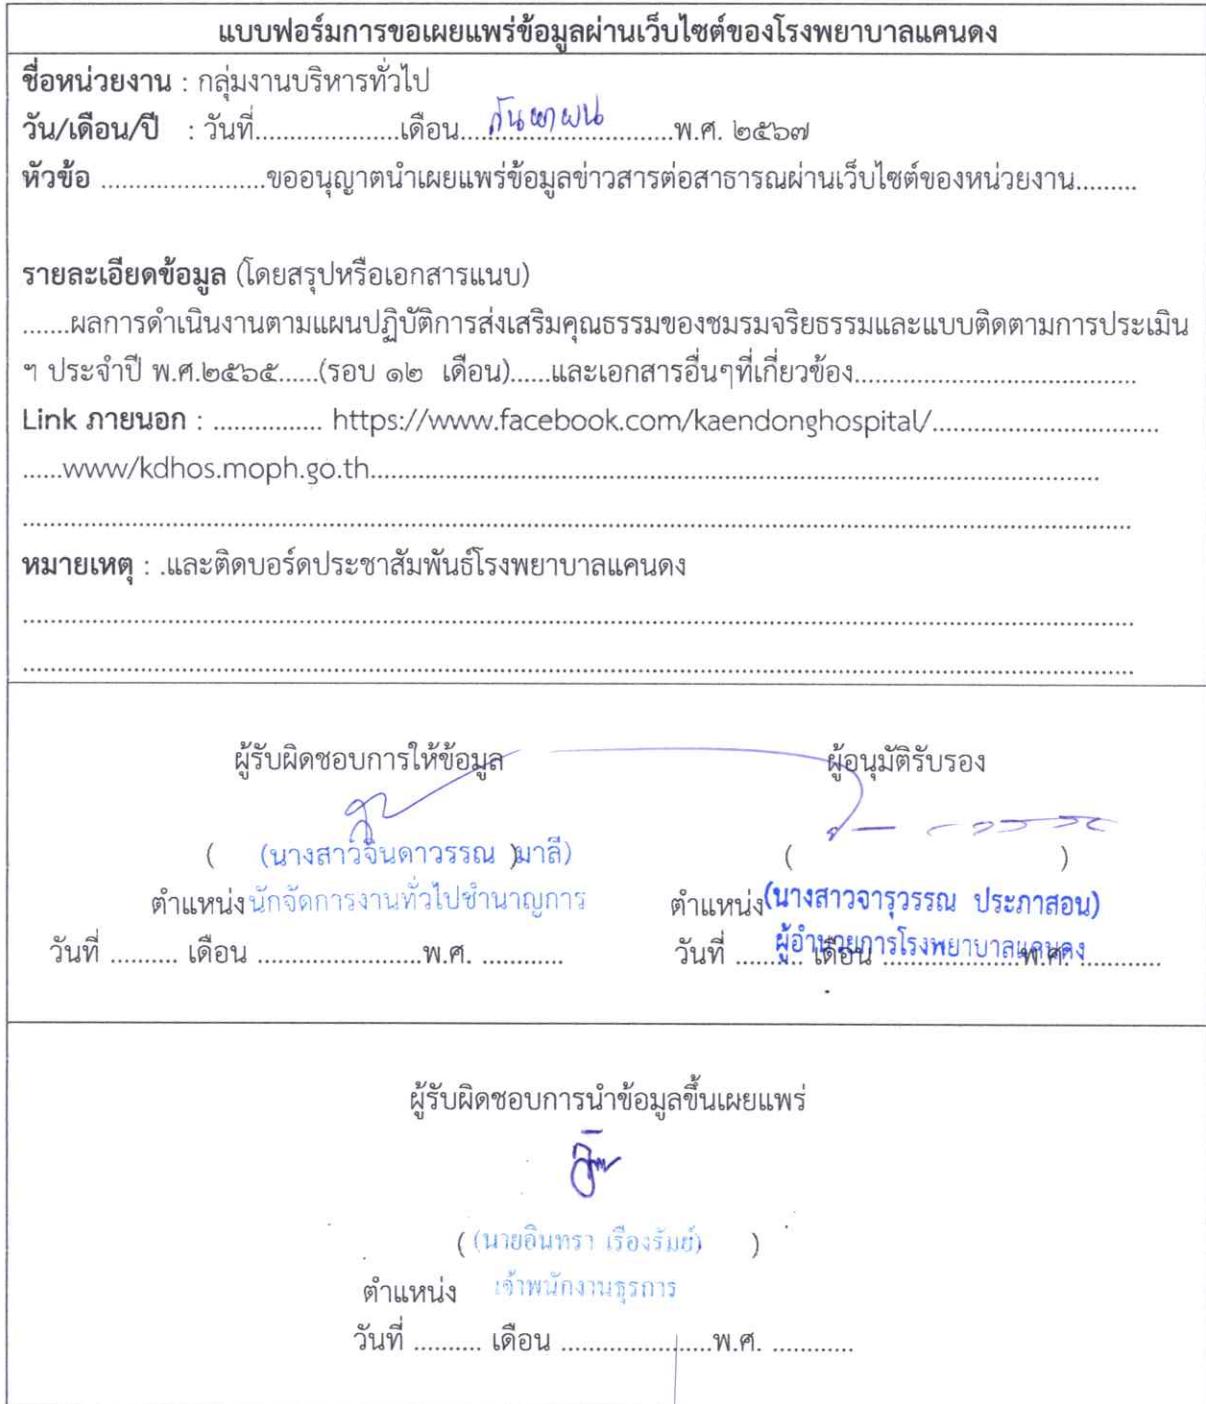 แบบฟอร์มการขอเผยแพร่ข้อมูลผ่านเว็บไซต์ของโรงพยาบาลแคนดง
ชื่อหน่วยงาน : กลุ่มงานบริหารทั่วไป
วัน/เดือน/ปี : วันที่.....................เดือน....กันยายน..........................พ.ศ. ๒๕๖๗
หัวข้อ ........................ขออนุญาตนำเผยแพร่ข้อมูลข่าวสารต่อสาธารณผ่านเว็บไซต์ของหน่วยงาน.........
รายละเอียดข้อมูล (โดยสรุปหรือเอกสารแนบ)
.......ผลการดำเนินงานตามแผนปฏิบัติการส่งเสริมคุณธรรมของชมรมจริยธรรมและแบบติดตามการประเมิน
ฯ ประจำปี พ.ศ.๒๕๖๕......(รอบ ๑๒ เดือน)......และเอกสารอื่นๆที่เกี่ยวข้อง.........................................
Link ภายนอก : ................ https://www.facebook.com/kaendonghospital/.................................
......www/kdhos.moph.go.th..........................................................................................................
หมายเหตุ : .และติดบอร์ดประชาสัมพันธ์โรงพยาบาลแคนดง
ผู้รับผิดชอบการให้ข้อมูล ผู้อนุมัติรับรอง
( (นางสาวจินดาวรรณ )มาลี) ( )
ตำแหน่งนักจัดการงานทั่วไปชำนาญการ ตำแหน่ง(นางสาวจารุวรรณ ประภาสอน)
ผู้อำนวยการโรงพยาบาลแคนดง
วันที่ .......... เดือน ........................พ.ศ. ............ วันที่ .......... เดือน ....................พ.ศ. ............
ผู้รับผิดชอบการนำข้อมูลขึ้นเผยแพร่
( (นายอินทรา เรืองรัมย์) )
ตำแหน่ง เจ้าพนักงานธุรการ
วันที่ .......... เดือน ......................พ.ศ. ............